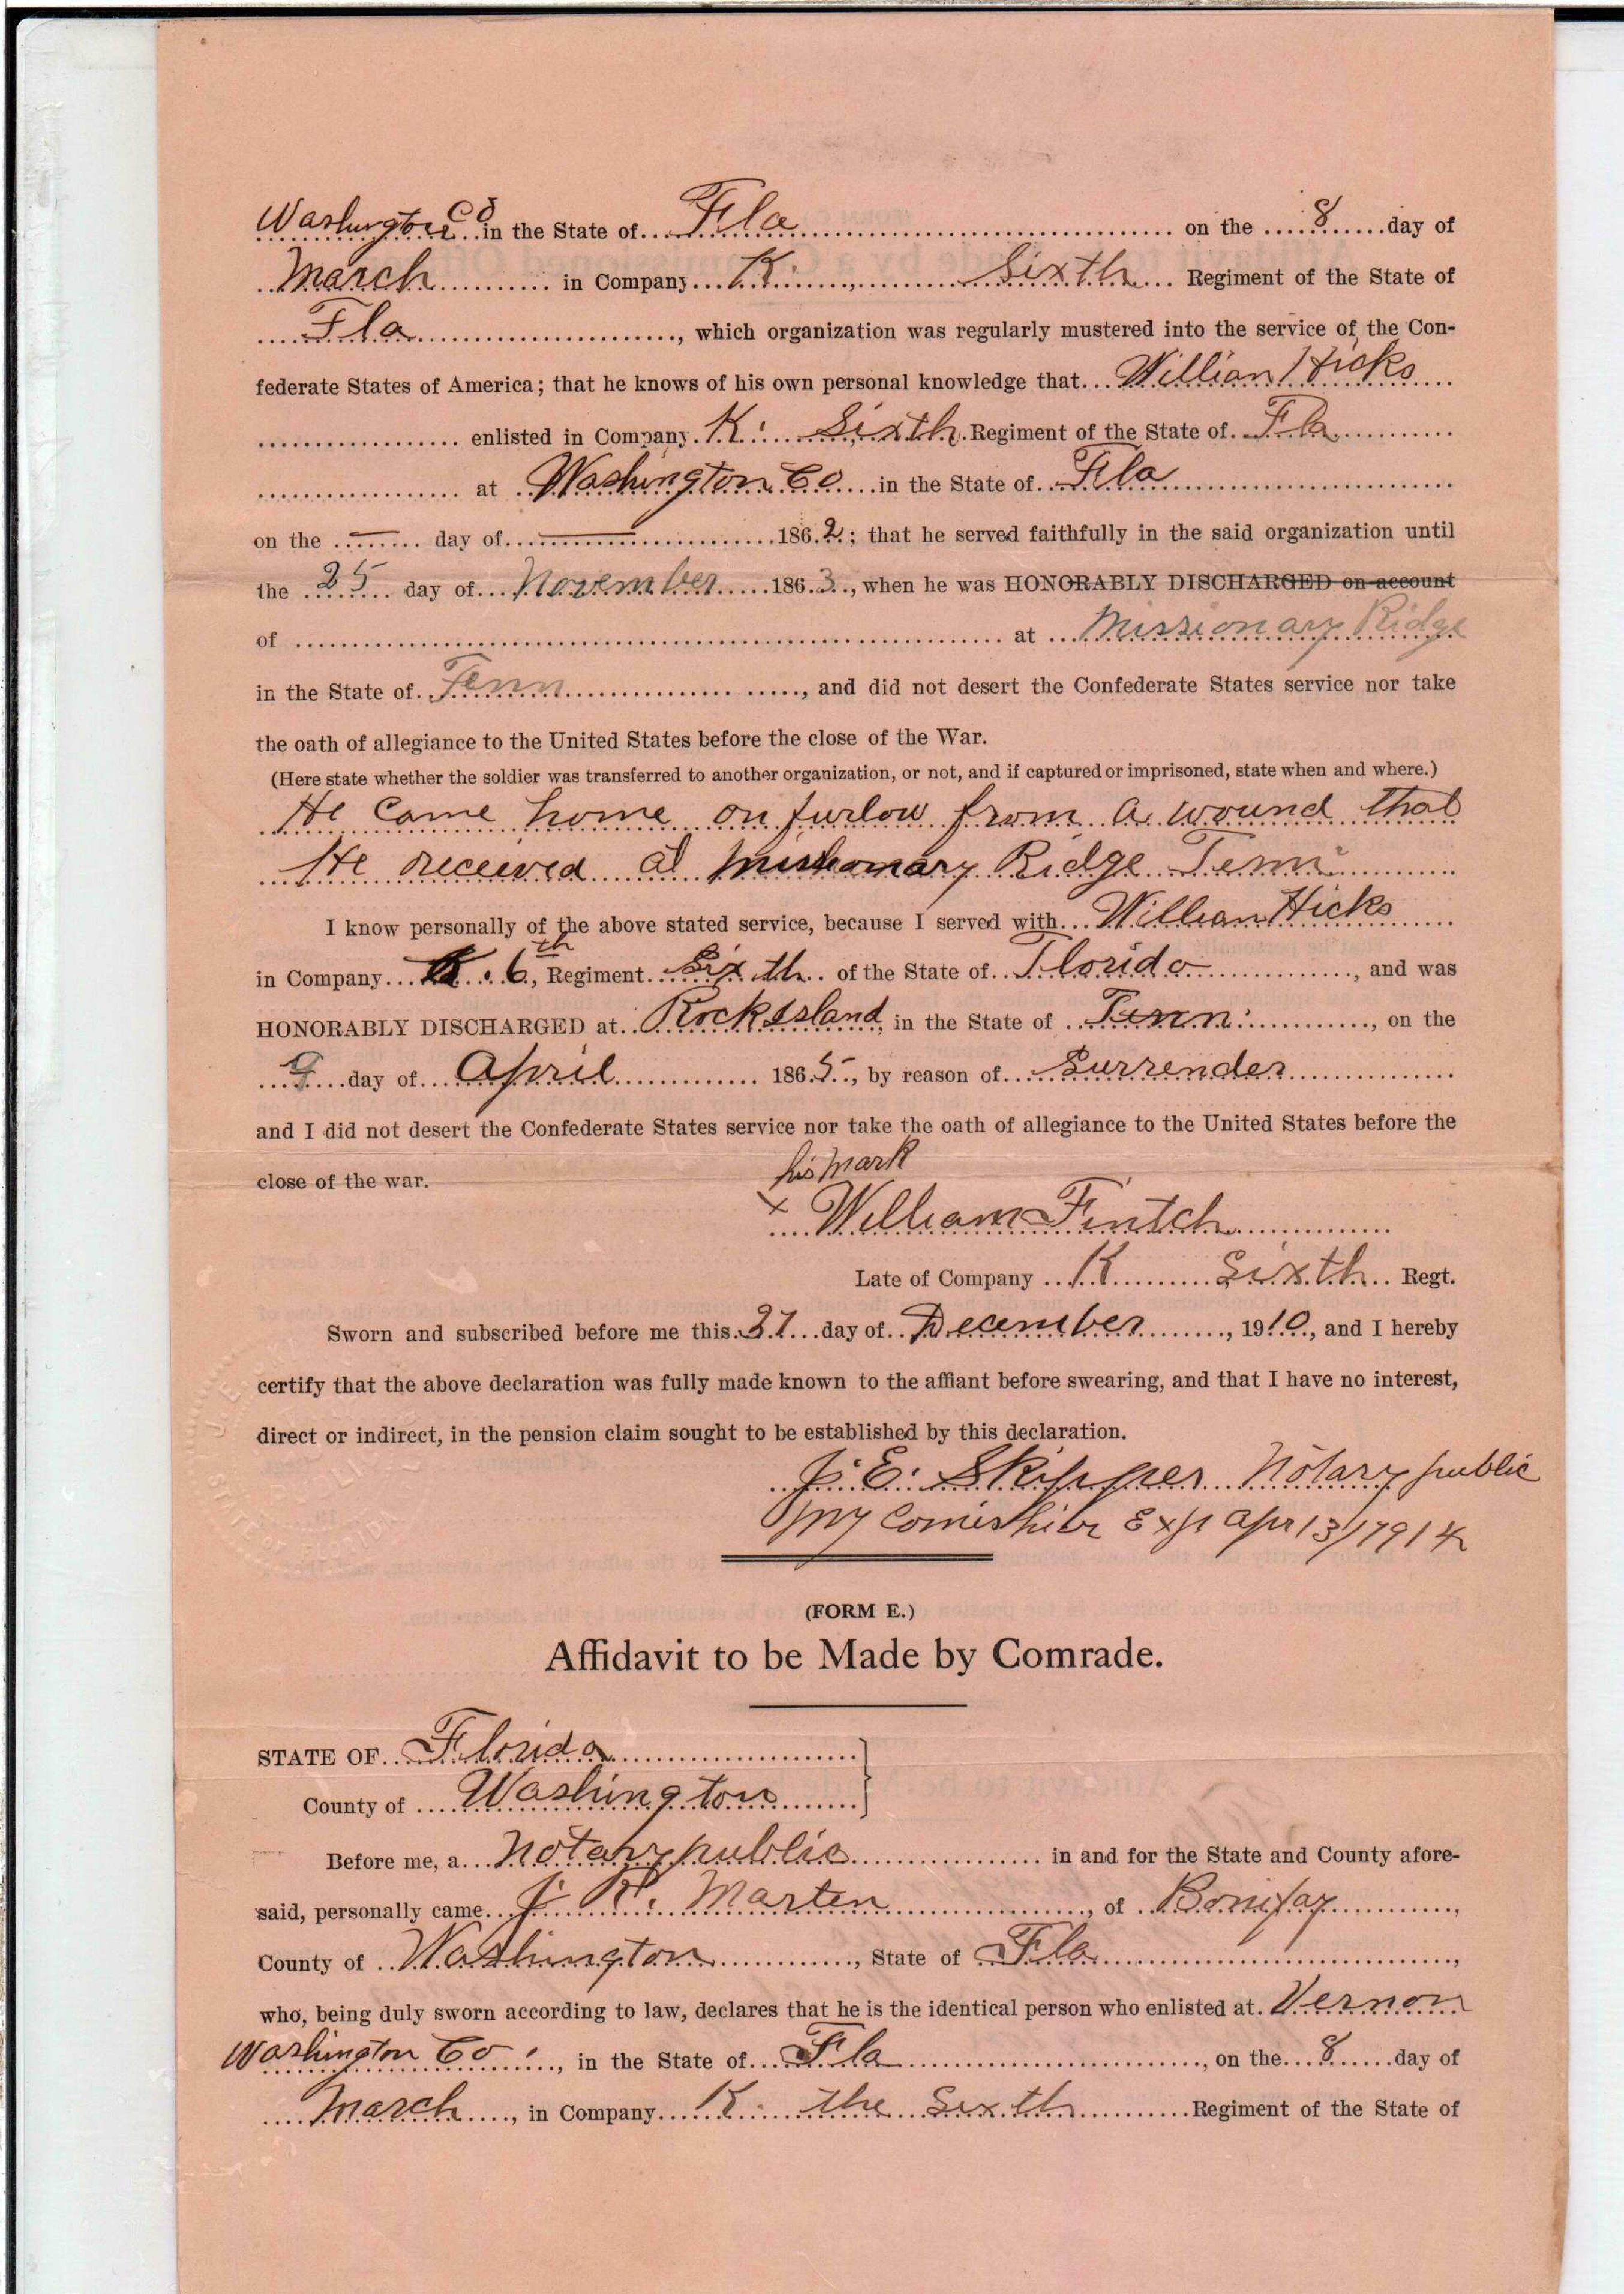 Washington Co in the State of Fla on the 8 day of
March in Company K. Sixth Regiment of the State of
Fla, which organization was regularly mustered into the service of the Con-
federate States of America; that he knows of his own personal knowledge that Willian Hicks
enlisted in Company K. Sixth Regiment of the State of Fla
at Washington Co in the State of Fla
on the — day of — 1862; that he served faithfully in the said organization until
the 25 day of November 1863, when he was HONORABLY DISCHARGED on account
of at Missionary Ridge
in the State of Tenn, and did not desert the Confederate States service nor take
the oath of allegiance to the United States before the close of the War.
(Here state whether the soldier was transferred to another organization, or not, and if captured or imprisoned, state when and where.)
He Came home on furlow from a wound that
He received at Missionary Ridge Tenn
I know personally of the above stated service, because I served with Willian Hicks
in Company K. 6th, Regiment Sixth of the State of Florida, and was
HONORABLY DISCHARGED at Rock Island, in the State of Tenn, on the
9 day of April 1865, by reason of Surrender
and I did not desert the Confederate States service nor take the oath of allegiance to the United States before the
close of the war.
his mark
x William Fintch
Late of Company K Sixth Regt.
Sworn and subscribed before me this day of December, 1910, and I hereby
certify that the above declaration was fully made known to the affiant before swearing, and that I have no interest,
direct or indirect, in the pension claim sought to be established by this declaration.
J. E. Skipper Notary public
My Exp Apr 13/1914
(FORM E.)
Affidavit to be Made by Comrade.
STATE OF Florida
County of Washington
Before me, a Notary public in and for the State and County afore-
said, personally came J. R. Marten, of Bonifay,
County of Washington, State of Fla,
who, being duly sworn according to law, declares that he is the identical person who enlisted at Vernon
Washington Co, in the State of Fla, on the 8 day of
March, in Company K. the Sixth Regiment of the State of